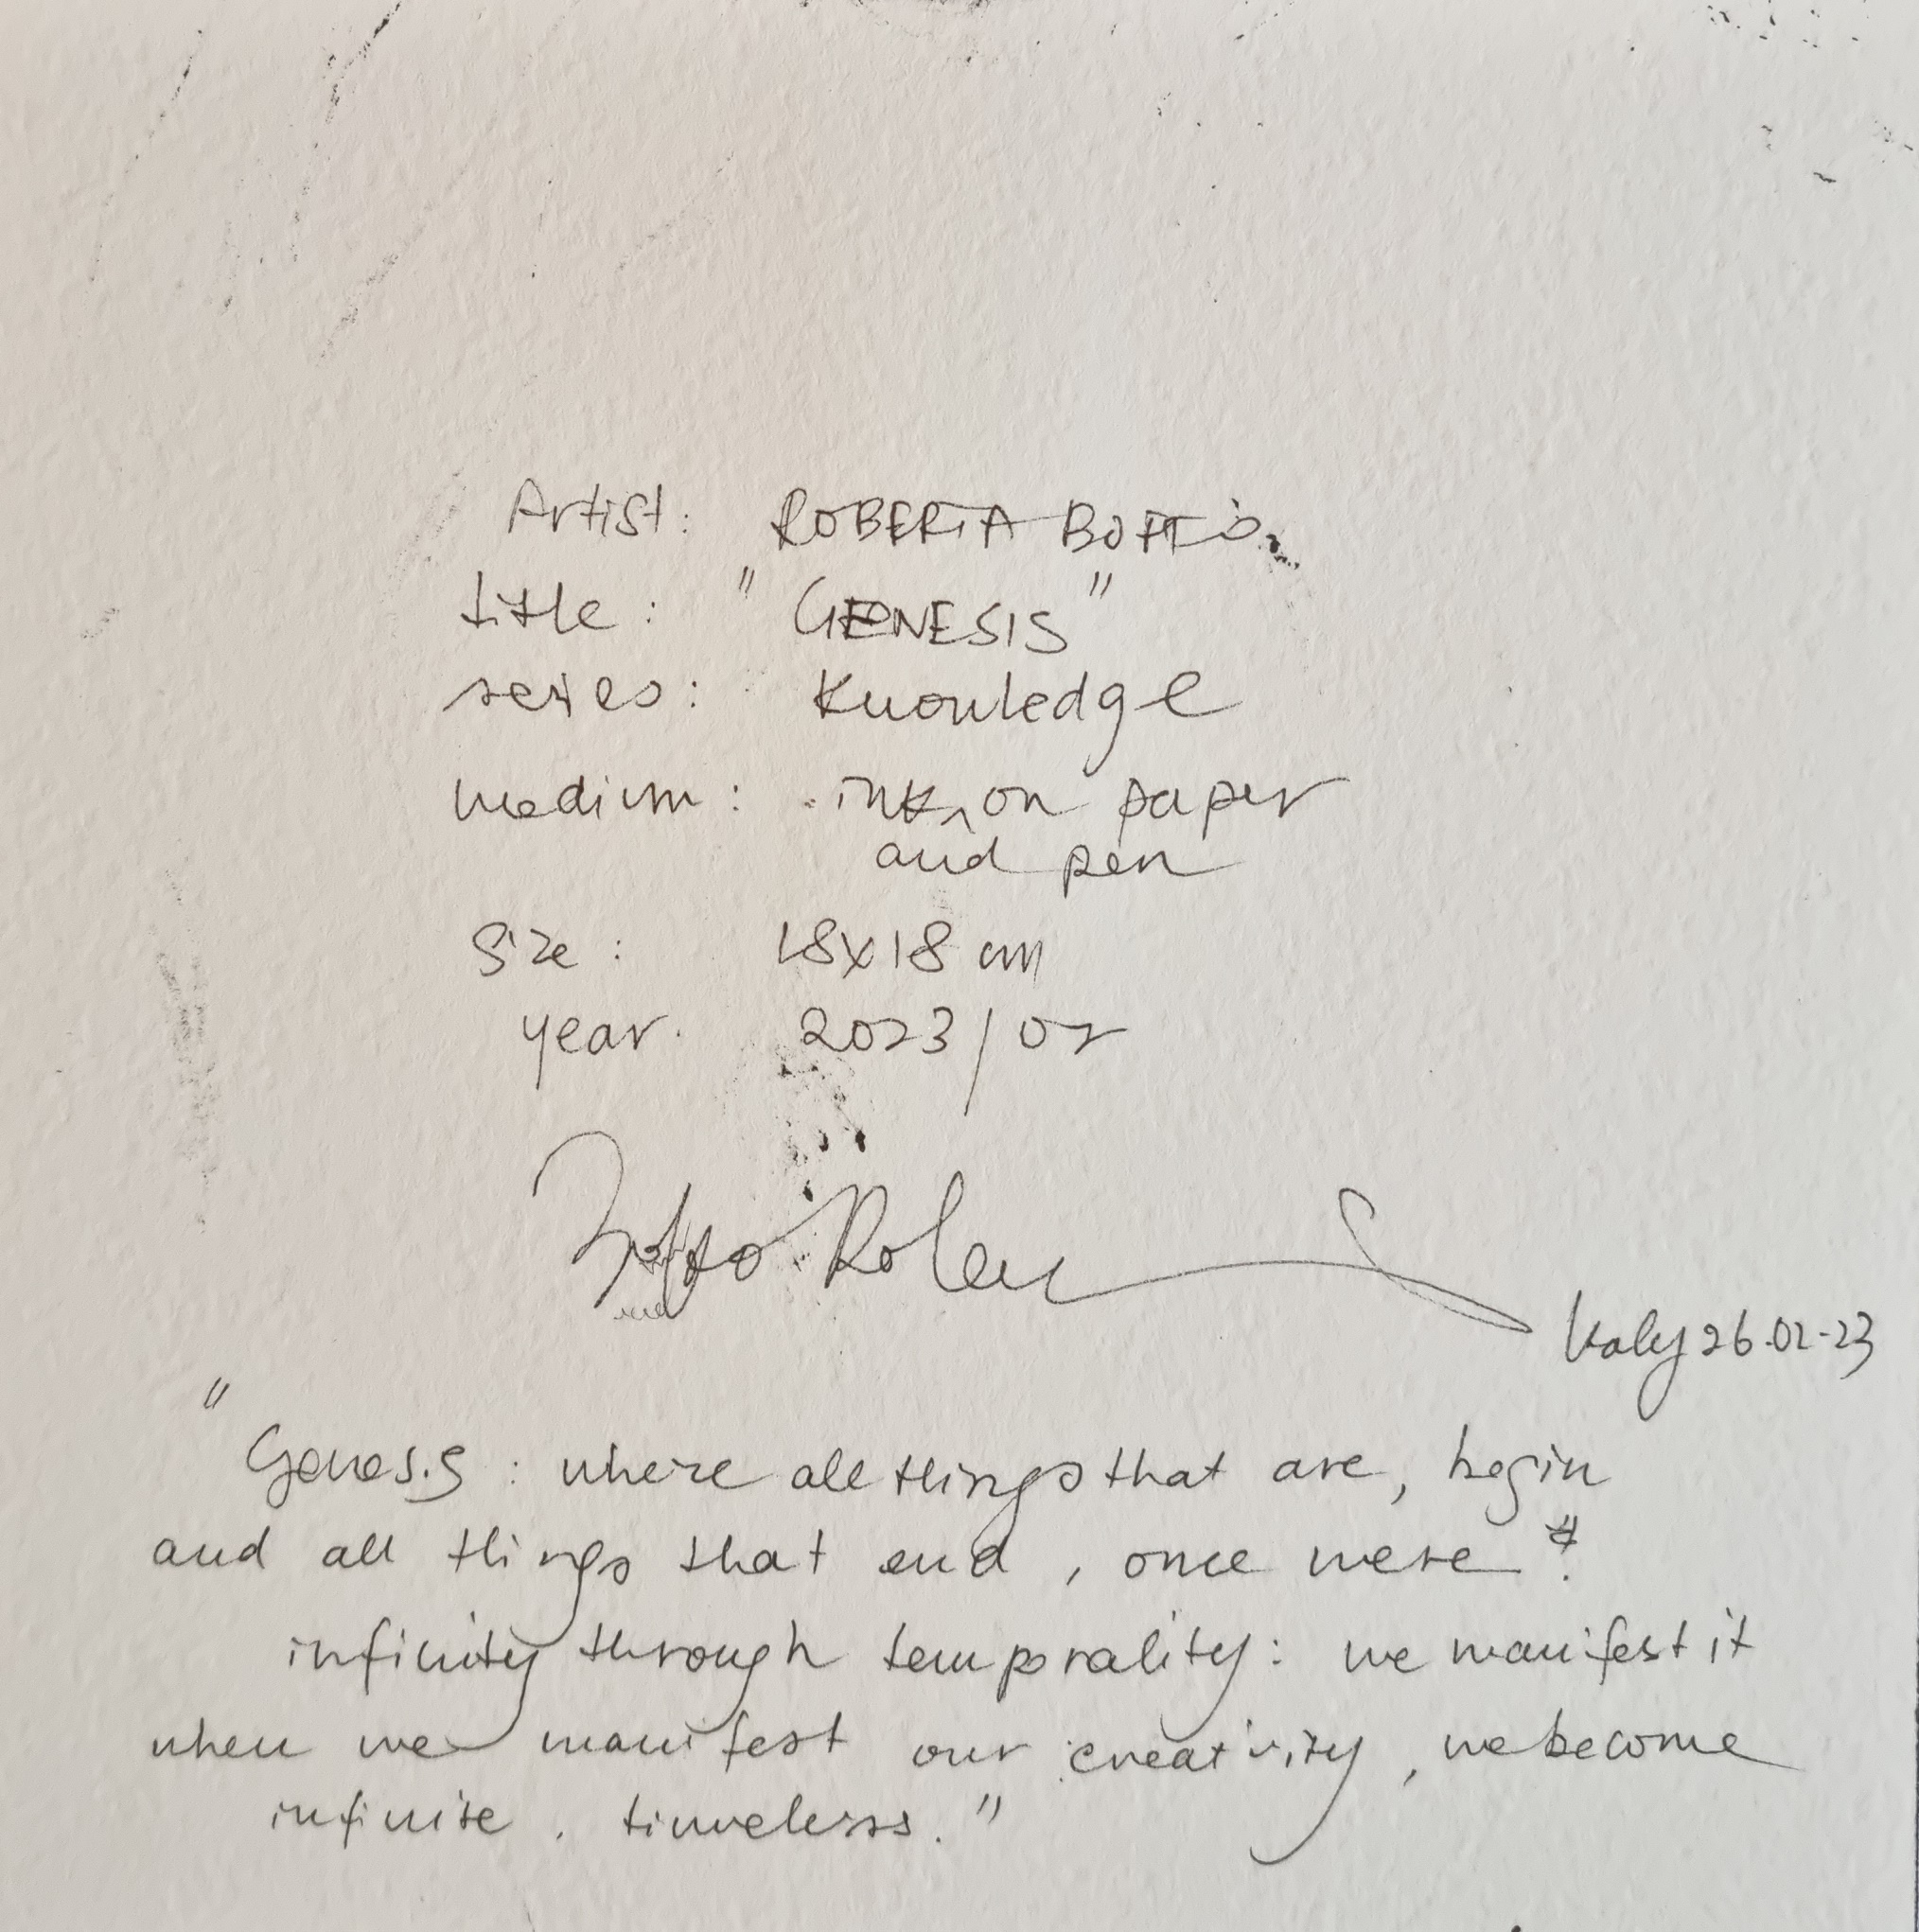 Artist: ROBERTA BOFFO
title: "GENESIS"
series: Knowledge
medium: ink on paper
and pen
Size: 18x18 cm
year. 2023/02
Italy 26.02-23
"Genesis: where all things that are, begin
and all things that end, once were.
infinity through temporality: we manifest it
when we manifest our creativity, we become
infinite. timeless."